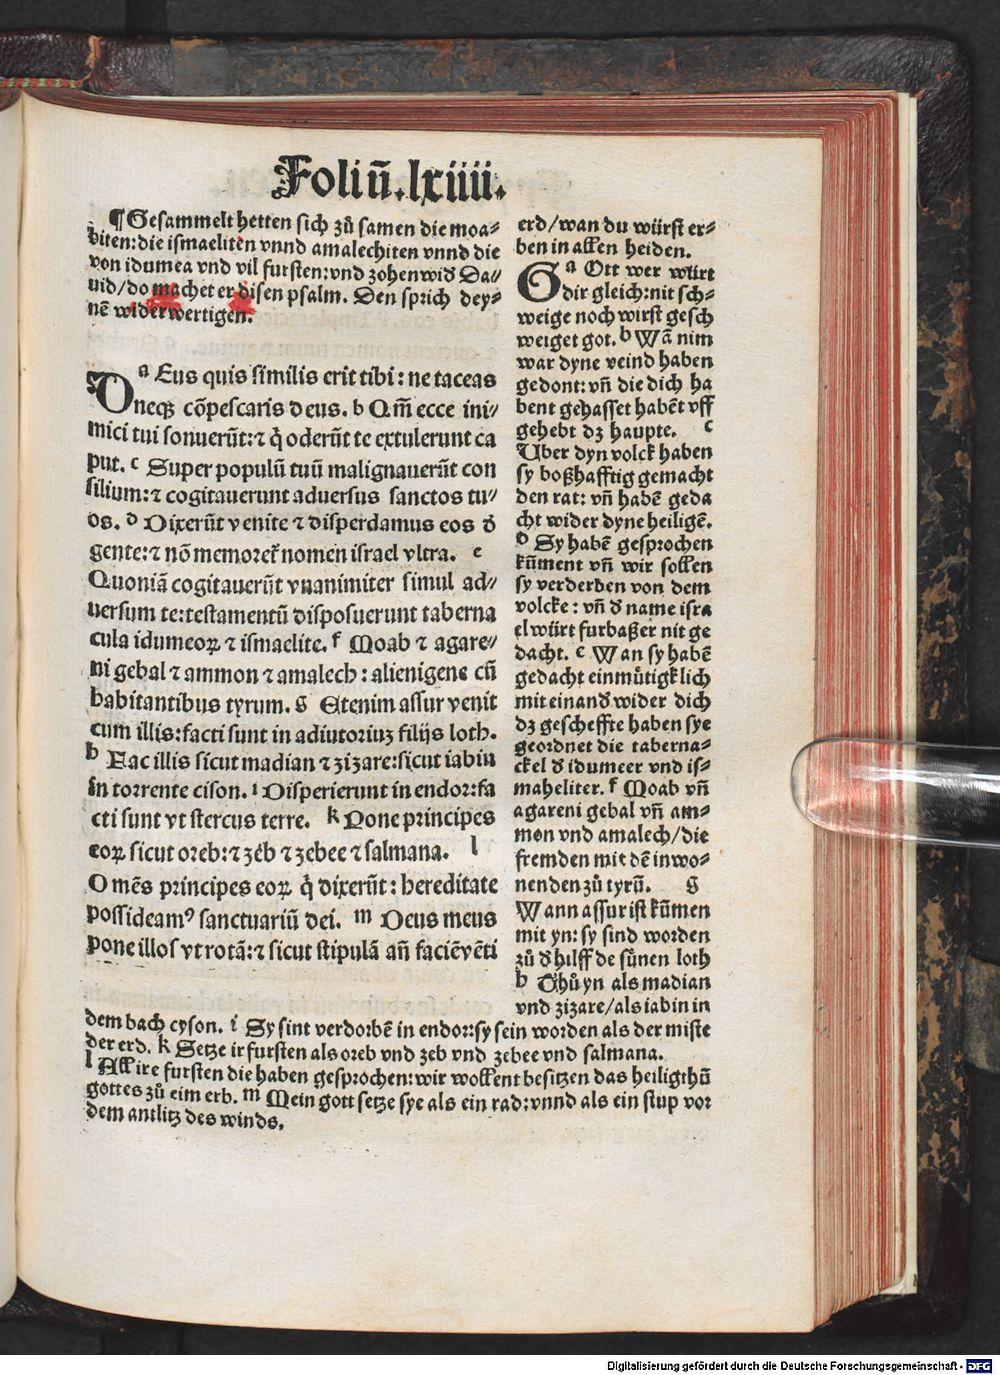 Foliū.lxiiii.
¶Gesammelt hetten sich zů samen die moa⸗
biten:die ismaeliten vnnd amalechiten vnnd die
von idumea vnd vil fursten:vnd zohen wiď Da⸗
uid/do machet er disen psalm. Den sprich dey⸗
nē widerwertigen.
ᵃ Eus quis similis erit tibi: ne taceas
Dneqꝫ cōpescaris deus. b Qm̄ ecce ini⸗
mici tui sonuerūt:⁊ q̇ oderūt te extulerunt ca
put. ᶜ Super populū tuū malignauerūt con
silium:⁊ cogitauerunt aduersus sanctos tu⸗
os. ᵈ Dixerūt venite ⁊ disperdamus eos ď
gente:⁊ nō memoreꝶ nomen israel vltra. ᵉ
Quoniā cogitauerūt vnanimiter simul ad⸗
uersum te:testamentū disposuerunt taberna
cula idumeoꝝ ⁊ ismaelite. ᶠ Moab ⁊ agare⸗
ni gebal ⁊ ammon ⁊ amalech: alienigene cū
habitantibus tyrum. g Etenim assur venit
cum illis:facti sunt in adiutoriuꝫ filijs loth.
ʰ Fac illis sicut madian ⁊ zizare:sicut iabin
in torrente cison. ⁱ Disperierunt in endor:fa
cti sunt vt stercus terre. ᵏ Pone principes
eoꝝ sicut oreb:⁊ zeb ⁊ zebee ⁊ salmana. ˡ
Omēs principes eoꝝ q̇ dixerūt: hereditate
possideamꝰ sanctuariū dei. ᵐ Deus meus
pone illos vt rotā:⁊ sicut stipulā añ faciē vēti
erd/wan du würst er⸗
ben in allen heiden.
Gᵃ Ott wer würt
dir gleich:nit sch⸗
weige noch wirst gesch
weiget got. ᵇ Wā nim
war dyne veind haben
gedont: vñ die dich ha
bent gehasset habēt vff
gehebt dꝫ haupte. ᶜ
Uber dyn volck haben
sy boßhafftig gemacht
den rat: vñ habē geda
cht wider dyne heiligē.
ᵈ Sy habē gesprochen
kūment vñ wir sollen
sy verderben von dem
volcke: vñ ď name isra
el würt furbaßer nit ge
dacht. ᵉ Wan sy habē
gedacht einmůtigklich
mit einanď wider dich
dꝫ gescheffte haben sye
geordnet die taberna⸗
ckel ď idumeer vnd is⸗
maheliter. ᶠ Moab vñ
agareni gebal vñ am⸗
mon vnd amalech/die
fremden mit dē inwo⸗
nenden zů tyrū. g
Wann assur ist kūmen
mit yn: sy sind worden
zů ď hilff de sünen loth
ʰ Thů yn als madian
vnd zizare/als iabin in
dem bach cyson. ⁱ Sy sint verdorbē in endor:sy sein worden als der miste
der erd. ᵏ Setze ir fursten als oreb vnd zeb vnd zebee vnd salmana.
ˡ All ire fursten die haben gesprochen:wir wollent besitzen das heiligthū
gottes zů eim erb. ᵐ Mein gott setze sye als ein rad:vnnd als ein stup vor
dem antlitz des winds.
Digitalisierung gefördert durch die Deutsche Forschungsgemeinschaft - DFG